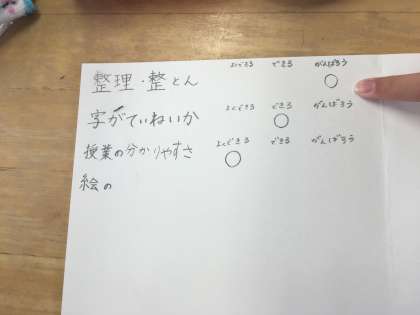 よくできる できる がんばろう
整理・整とん ○
よくできる できる がんばろう
字がていねいか ○
よくできる できる がんばろう
授業の分かりやすさ ○
絵の